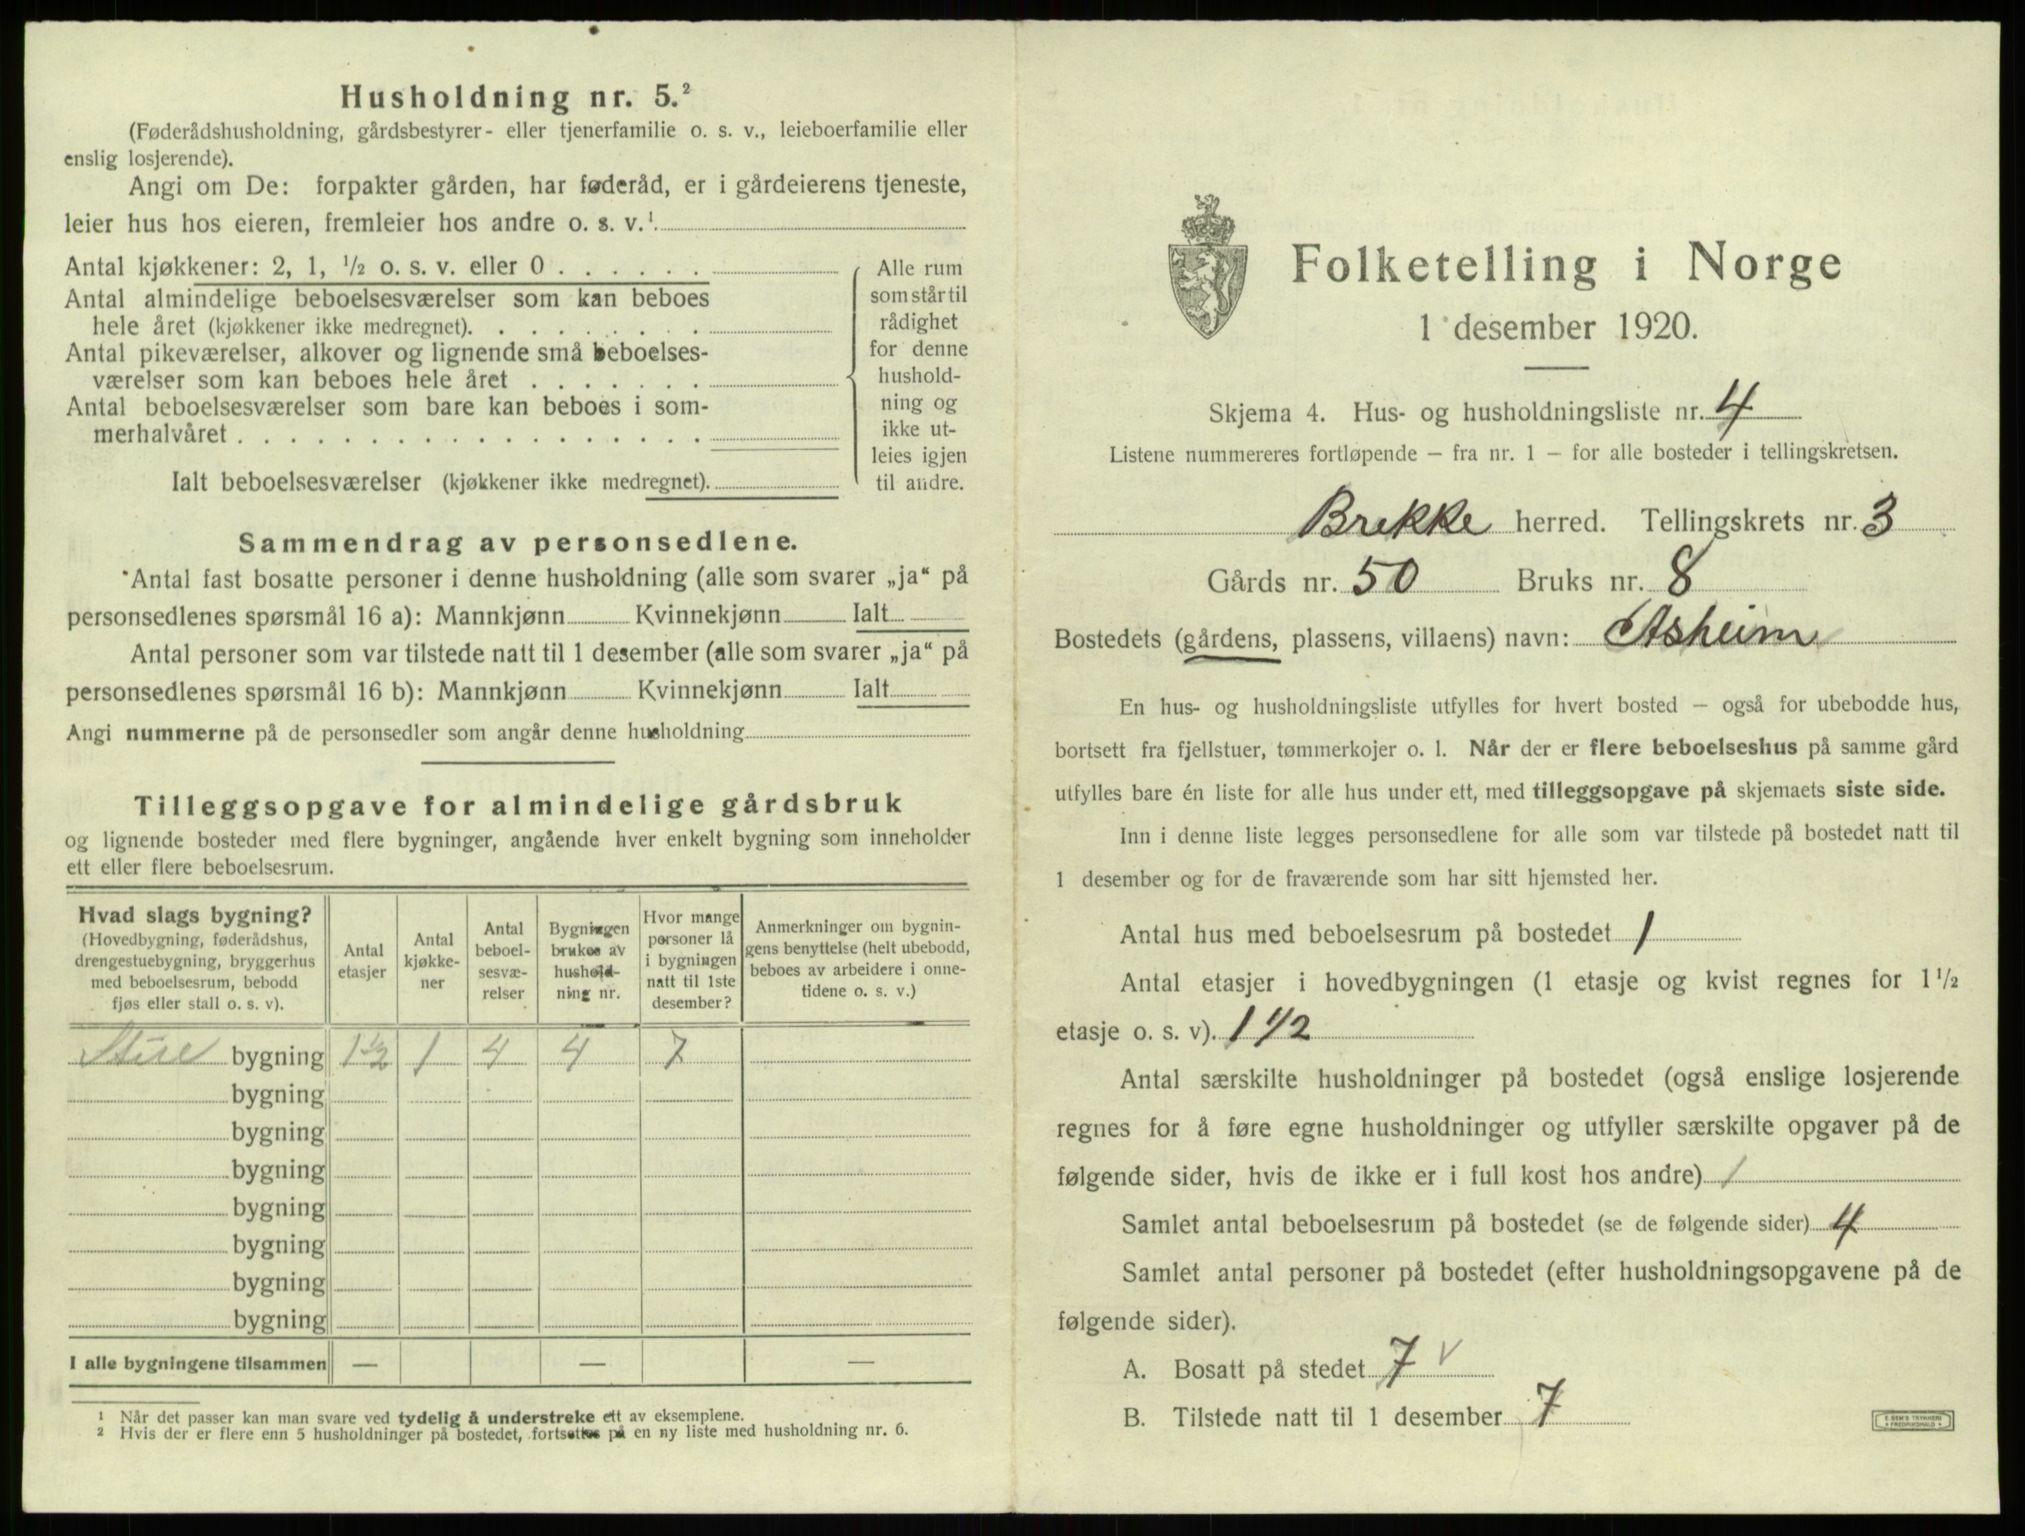 Husholdning nr. 5.²
(Føderådshusholdning, gårdsbestyrer- eller tjenerfamilie o. s. v., leieboerfamilie eller
enslig losjerende).
Angi om De: forpakter gården, har føderåd, er i gårdeierens tjeneste,
leier hus hos eieren, fremleier hos andre o. s. v.¹
Antal kjøkkener: 2, 1, ½ o. s. v. eller 0 . . . . . .
Antal almindelige beboelsesværelser som kan beboes
hele året (kjøkkener ikke medregnet). . . . . . . . .
Antal pikeværelser, alkover og lignende små beboelses-
værelser som kan beboes hele året . . . . . . .
Antal beboelsesværelser som bare kan beboes i som-
merhalvåret . . . . . . . . . . . . . . . . . .
Ialt beboelsesværelser (kjøkkener ikke medregnet).
Alle rum
som står til
rådighet
for denne
hushold-
ning og
ikke ut-
leies igjen
til andre.
Sammendrag av personsedlene.
Antal fast bosatte personer i denne husholdning (alle som svarer „ja“ på
personsedlenes spørsmål 16 a): Mannkjønn Kvinnekjønn Ialt
Antal personer som var tilstede natt til 1 desember (alle som svarer „ja“ på
personsedlenes spørsmål 16 b): Mannkjønn Kvinnekjønn Ialt
Angi nummerne på de personsedler som angår denne husholdning
Tilleggsopgave for almindelige gårdsbruk
og lignende bosteder med flere bygninger, angående hver enkelt bygning som inneholder
ett eller flere beboelsesrum.
Hvad slags bygning?
(Hovedbygning, føderådshus,
drengestuebygning, bryggerhus
med beboelsesrum, bebodd
fjøs eller stall o. s. v).
Antal
etasjer
Antal
kjøkke-
ner
Antal
beboel-
sesvæ-
relser
Bygningen
brukes av
hushold-
ning nr.
Hvor mange
personer lå
i bygningen
natt til 1ste
desember?
Anmerkninger om bygnin-
gens benyttelse (helt ubebodd,
beboes av arbeidere i onne-
tidene o. s. v.)
bygning 1½ 1 4 4 7
bygning
bygning
bygning
bygning
bygning
bygning
bygning
I alle bygningene tilsammen — — —
¹ Når det passer kan man svare ved tydelig å understreke ett av eksemplene.
² Hvis der er flere enn 5 husholdninger på bostedet, fortsettes på en ny liste med husholdning nr. 6.
Folketelling i Norge
1 desember 1920.
Skjema 4. Hus- og husholdningsliste nr. 4
Listene nummereres fortløpende — fra nr. 1 — for alle bosteder i tellingskretsen.
Brekke herred. Tellingskrets nr. 3
Gårds nr. 50 Bruks nr. 8
Bostedets (gårdens, plassens, villaens) navn: Asheim
En hus- og husholdningsliste utfylles for hvert bosted — også for ubebodde hus,
bortsett fra fjellstuer, tømmerkojer o. l. Når der er flere beboelseshus på samme gård
utfylles bare én liste for alle hus under ett, med tilleggsopgave på skjemaets siste side.
Inn i denne liste legges personsedlene for alle som var tilstede på bostedet natt til
1 desember og for de fraværende som har sitt hjemsted her.
Antal hus med beboelsesrum på bostedet 1
Antal etasjer i hovedbygningen (1 etasje og kvist regnes for 1 ½
etasje o. s. v). 1 1/2
Antal særskilte husholdninger på bostedet (også enslige losjerende
regnes for å føre egne husholdninger og utfyller særskilte opgaver på de
følgende sider, hvis de ikke er i full kost hos andre) 1
Samlet antal beboelsesrum på bostedet (se de følgende sider) 4
Samlet antal personer på bostedet (efter husholdningsopgavene på de
følgende sider).
A. Bosatt på stedet 7 v
B. Tilstede natt til 1 desember 7